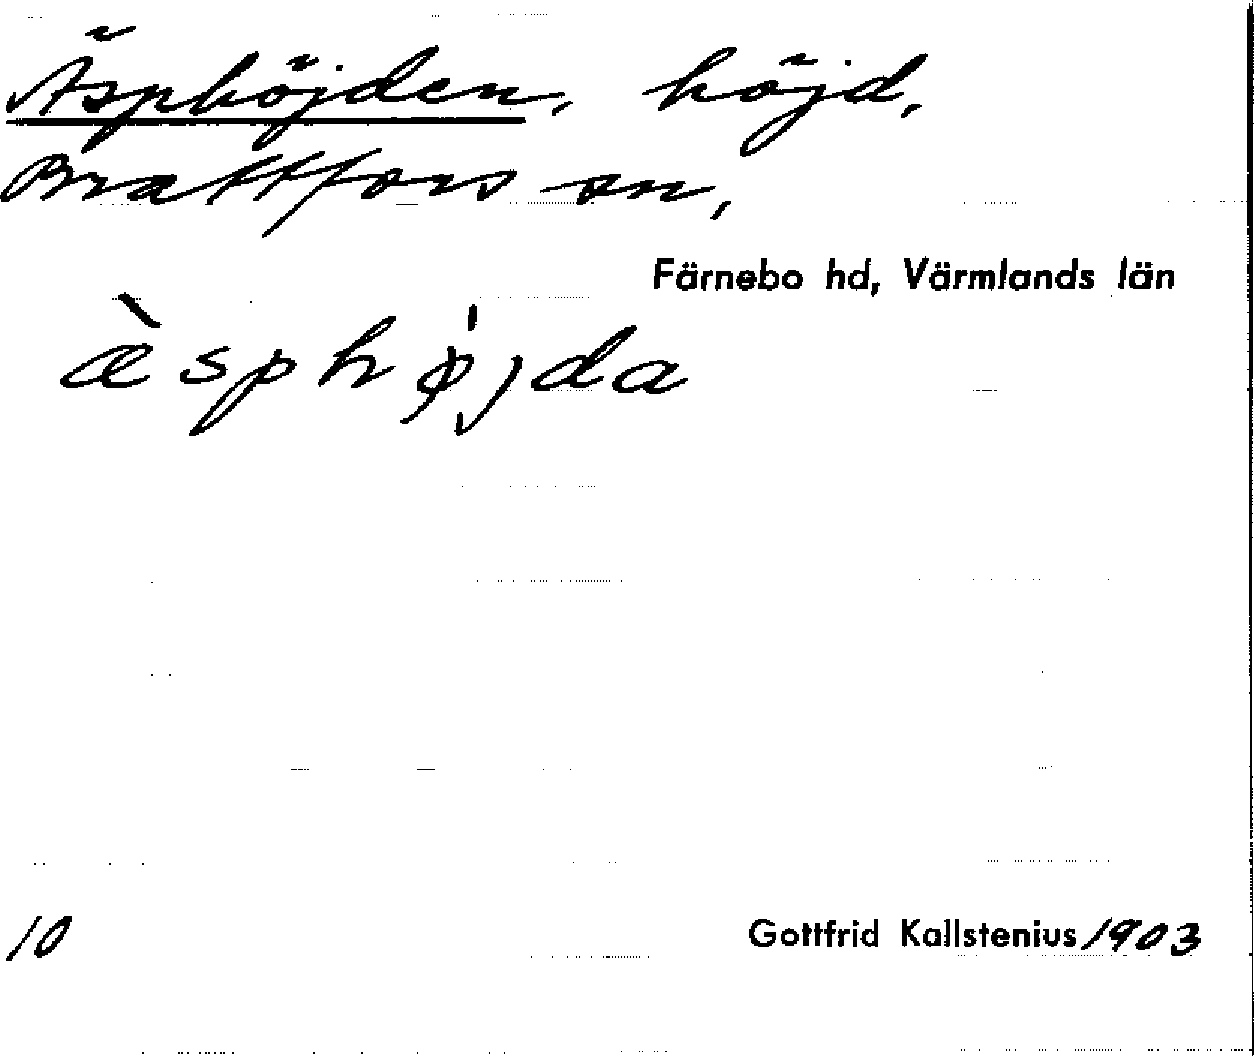 Äsphöjden, höjd,
Brattfors sn,
Färnebo hd, Värmlands län
æ̀sphǿ̨jda
10
Gottfrid Kallstenius 1903